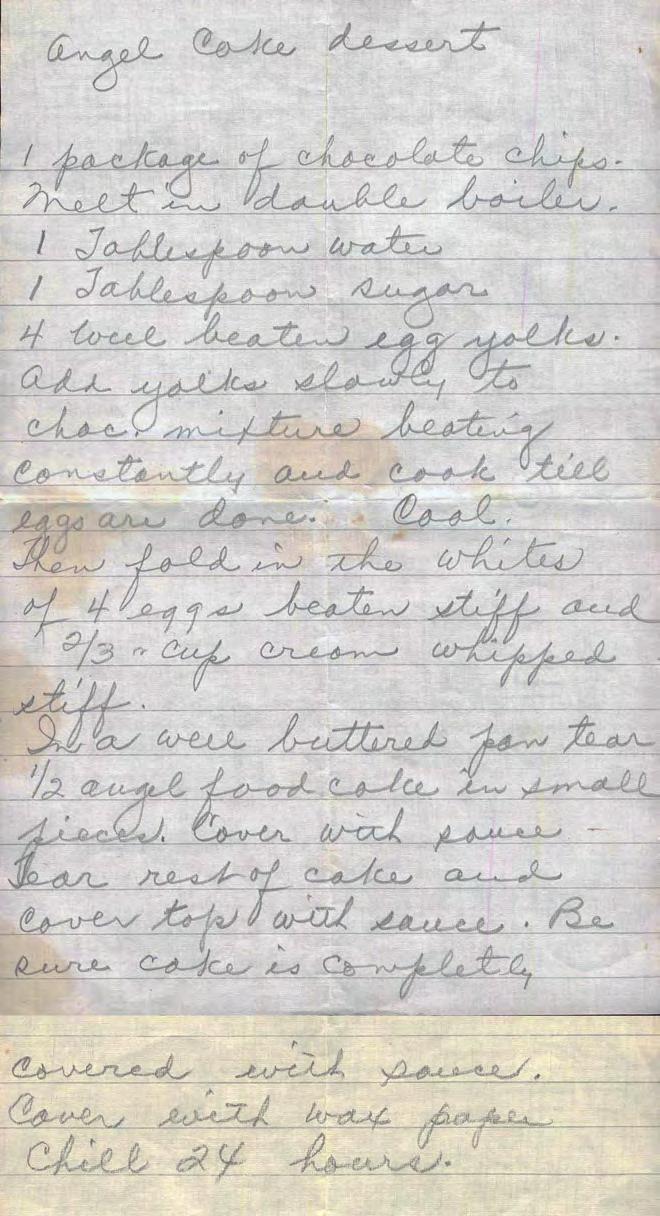 Angel Cake dessert
1 package of chocolate chips.
Melt in double boiler.
1 Tablespoon water
1 Tablespoon sugar
4 well beaten egg yolks.
Add yolks slowly to
choc. mixture beating
constantly and cook till
eggs are done. Cool.
Then fold in the whites
of 4 eggs beaten stiff and
2/3 cup cream whipped
stiff.
In a well buttered pan tear
1/2 angel food cake in small
pieces. Cover with sauce
Tear rest of cake and
cover top with sauce. Be
sure cake is completly
covered with sauce.
Cover with wax paper
Chill 24 hours.